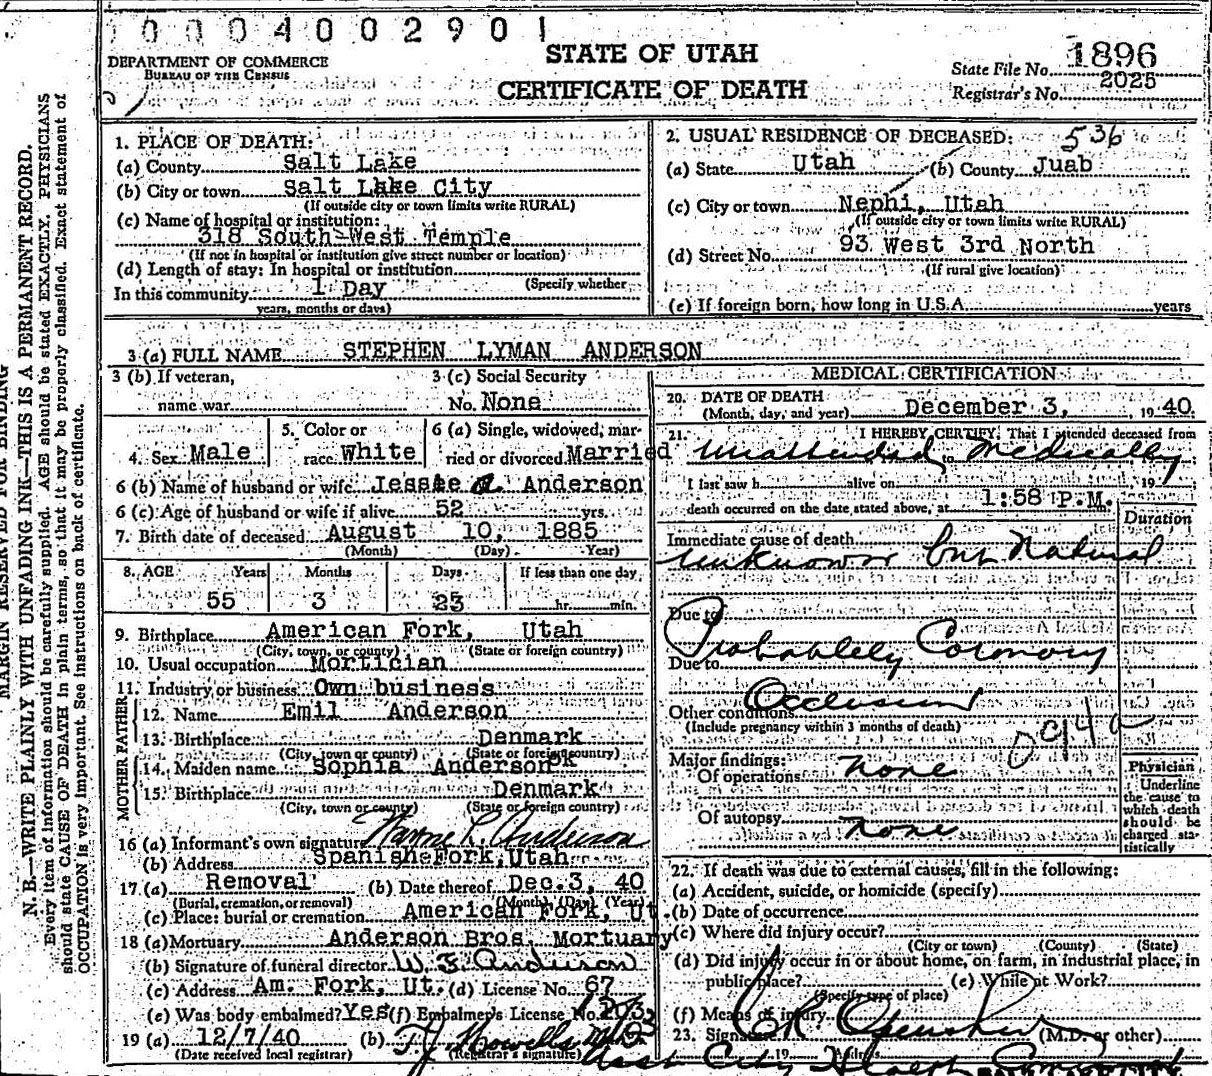 0 0 0 4 0 0 2 9 0 1
DEPARTMENT OF COMMERCE
BUREAU OF THE CENSUS
STATE OF UTAH
CERTIFICATE OF DEATH
State File No. 1896
Registrar's No. 2025
MARGIN RESERVED FOR BINDING
N. B.—WRITE PLAINLY WITH UNFADING INK—THIS IS A PERMANENT RECORD.
Every item of information should be carefully supplied. AGE should be stated EXACTLY. PHYSICIANS
should state CAUSE OF DEATH in plain terms, so that it may be properly classified. Exact statement of
OCCUPATION is very important. See instructions on back of certificate.
1. PLACE OF DEATH:
(a) County Salt Lake
(b) City or town Salt Lake City
(If outside city or town limits write RURAL)
(c) Name of hospital or institution:
318 South West Temple
(If not in hospital or institution give street number or location)
(d) Length of stay: In hospital or institution
(Specify whether
In this community 1 Day
years, months or days)
2. USUAL RESIDENCE OF DECEASED: 536
(a) State Utah (b) County Juab
(c) City or town Nephi, Utah
(If outside city or town limits write RURAL)
(d) Street No. 93 West 3rd North
(If rural give location)
(e) If foreign born, how long in U.S.A. years
3 (a) FULL NAME STEPHEN LYMAN ANDERSON
3 (b) If veteran,
name war
3 (c) Social Security
No. None
4. Sex Male
5. Color or
race White
6 (a) Single, widowed, mar-
ried or divorced Married
6 (b) Name of husband or wife Jessie A. Anderson
6 (c) Age of husband or wife if alive 52 yrs.
7. Birth date of deceased August 10, 1885
(Month) (Day) Year)
8. AGE Years Months Days If less than one day
55 3 23 hr. min.
9. Birthplace American Fork, Utah
(City, town, or county) (State or foreign country)
10. Usual occupation Mortician
11. Industry or business Own business
FATHER
12. Name Emil Anderson
13. Birthplace Denmark
(City, town or county) (State or foreign country)
MOTHER
14. Maiden name Sophia Anderson OK
15. Birthplace Denmark
(City, town or county) (State or foreign country)
16 (a) Informant's own signature Wayne L. Anderson
(b) Address Spanish Fork, Utah
17. (a) Removal (b) Date thereof Dec. 3, 40
(Burial, cremation, or removal) (Month) (Day) (Year)
(c) Place: burial or cremation American Fork, Ut.
18 (a) Mortuary Anderson Bros. Mortuary
(b) Signature of funeral director W. E. Anderson
(c) Address Am. Fork, Ut. (d) License No. 67
(e) Was body embalmed? Yes (f) Embalmer's License No.
19 (a) 12/7/40 (b) T J Howells M.D.
(Date received local registrar) (Registrar's signature)
MEDICAL CERTIFICATION
20. DATE OF DEATH
(Month, day, and year) December 3, , 19 40.
21. I HEREBY CERTIFY, That I attended deceased from
Unattended to Medically
I last saw h alive on , 19
death occurred on the date stated above, at 1:58 P.M.
Duration
Immediate cause of death
Unknown but Natural
Due to
Probablely Coronory
Due to
Occlusion
Other conditions
(Include pregnancy within 3 months of death)
094a
Major findings:
Of operations none
Of autopsy none
Physician
Underline
the cause to
which death
should be
charged sta-
tistically
22. If death was due to external causes, fill in the following:
(a) Accident, suicide, or homicide (specify)
(b) Date of occurrence
(c) Where did injury occur?
(City or town) (County) (State)
(d) Did injury occur in or about home, on farm, in industrial place, in
public place? (e) While at Work?
(Specify type of place)
(f) Means of injury
23. Signature (M.D. or other)
City Health